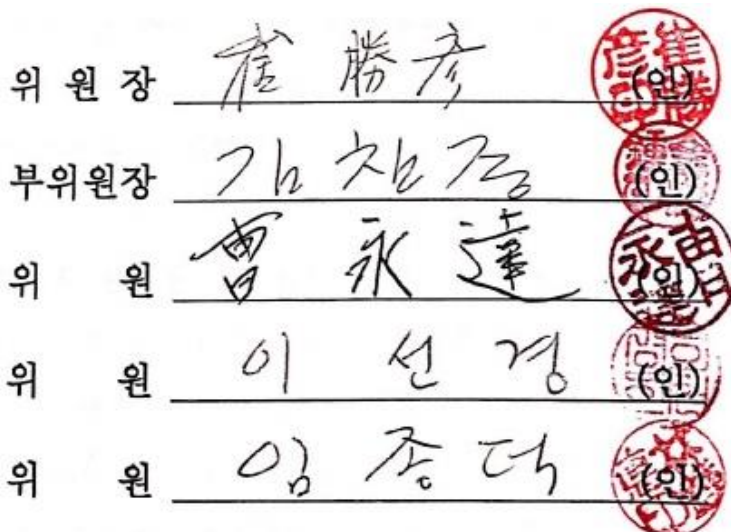 위 원 장 崔 勝 彦 (인)
부위원장 김 찬 종 (인)
위 원 曺 永 達 (인)
위 원 이 선 경 (인)
위 원 임 종 덕 (인)